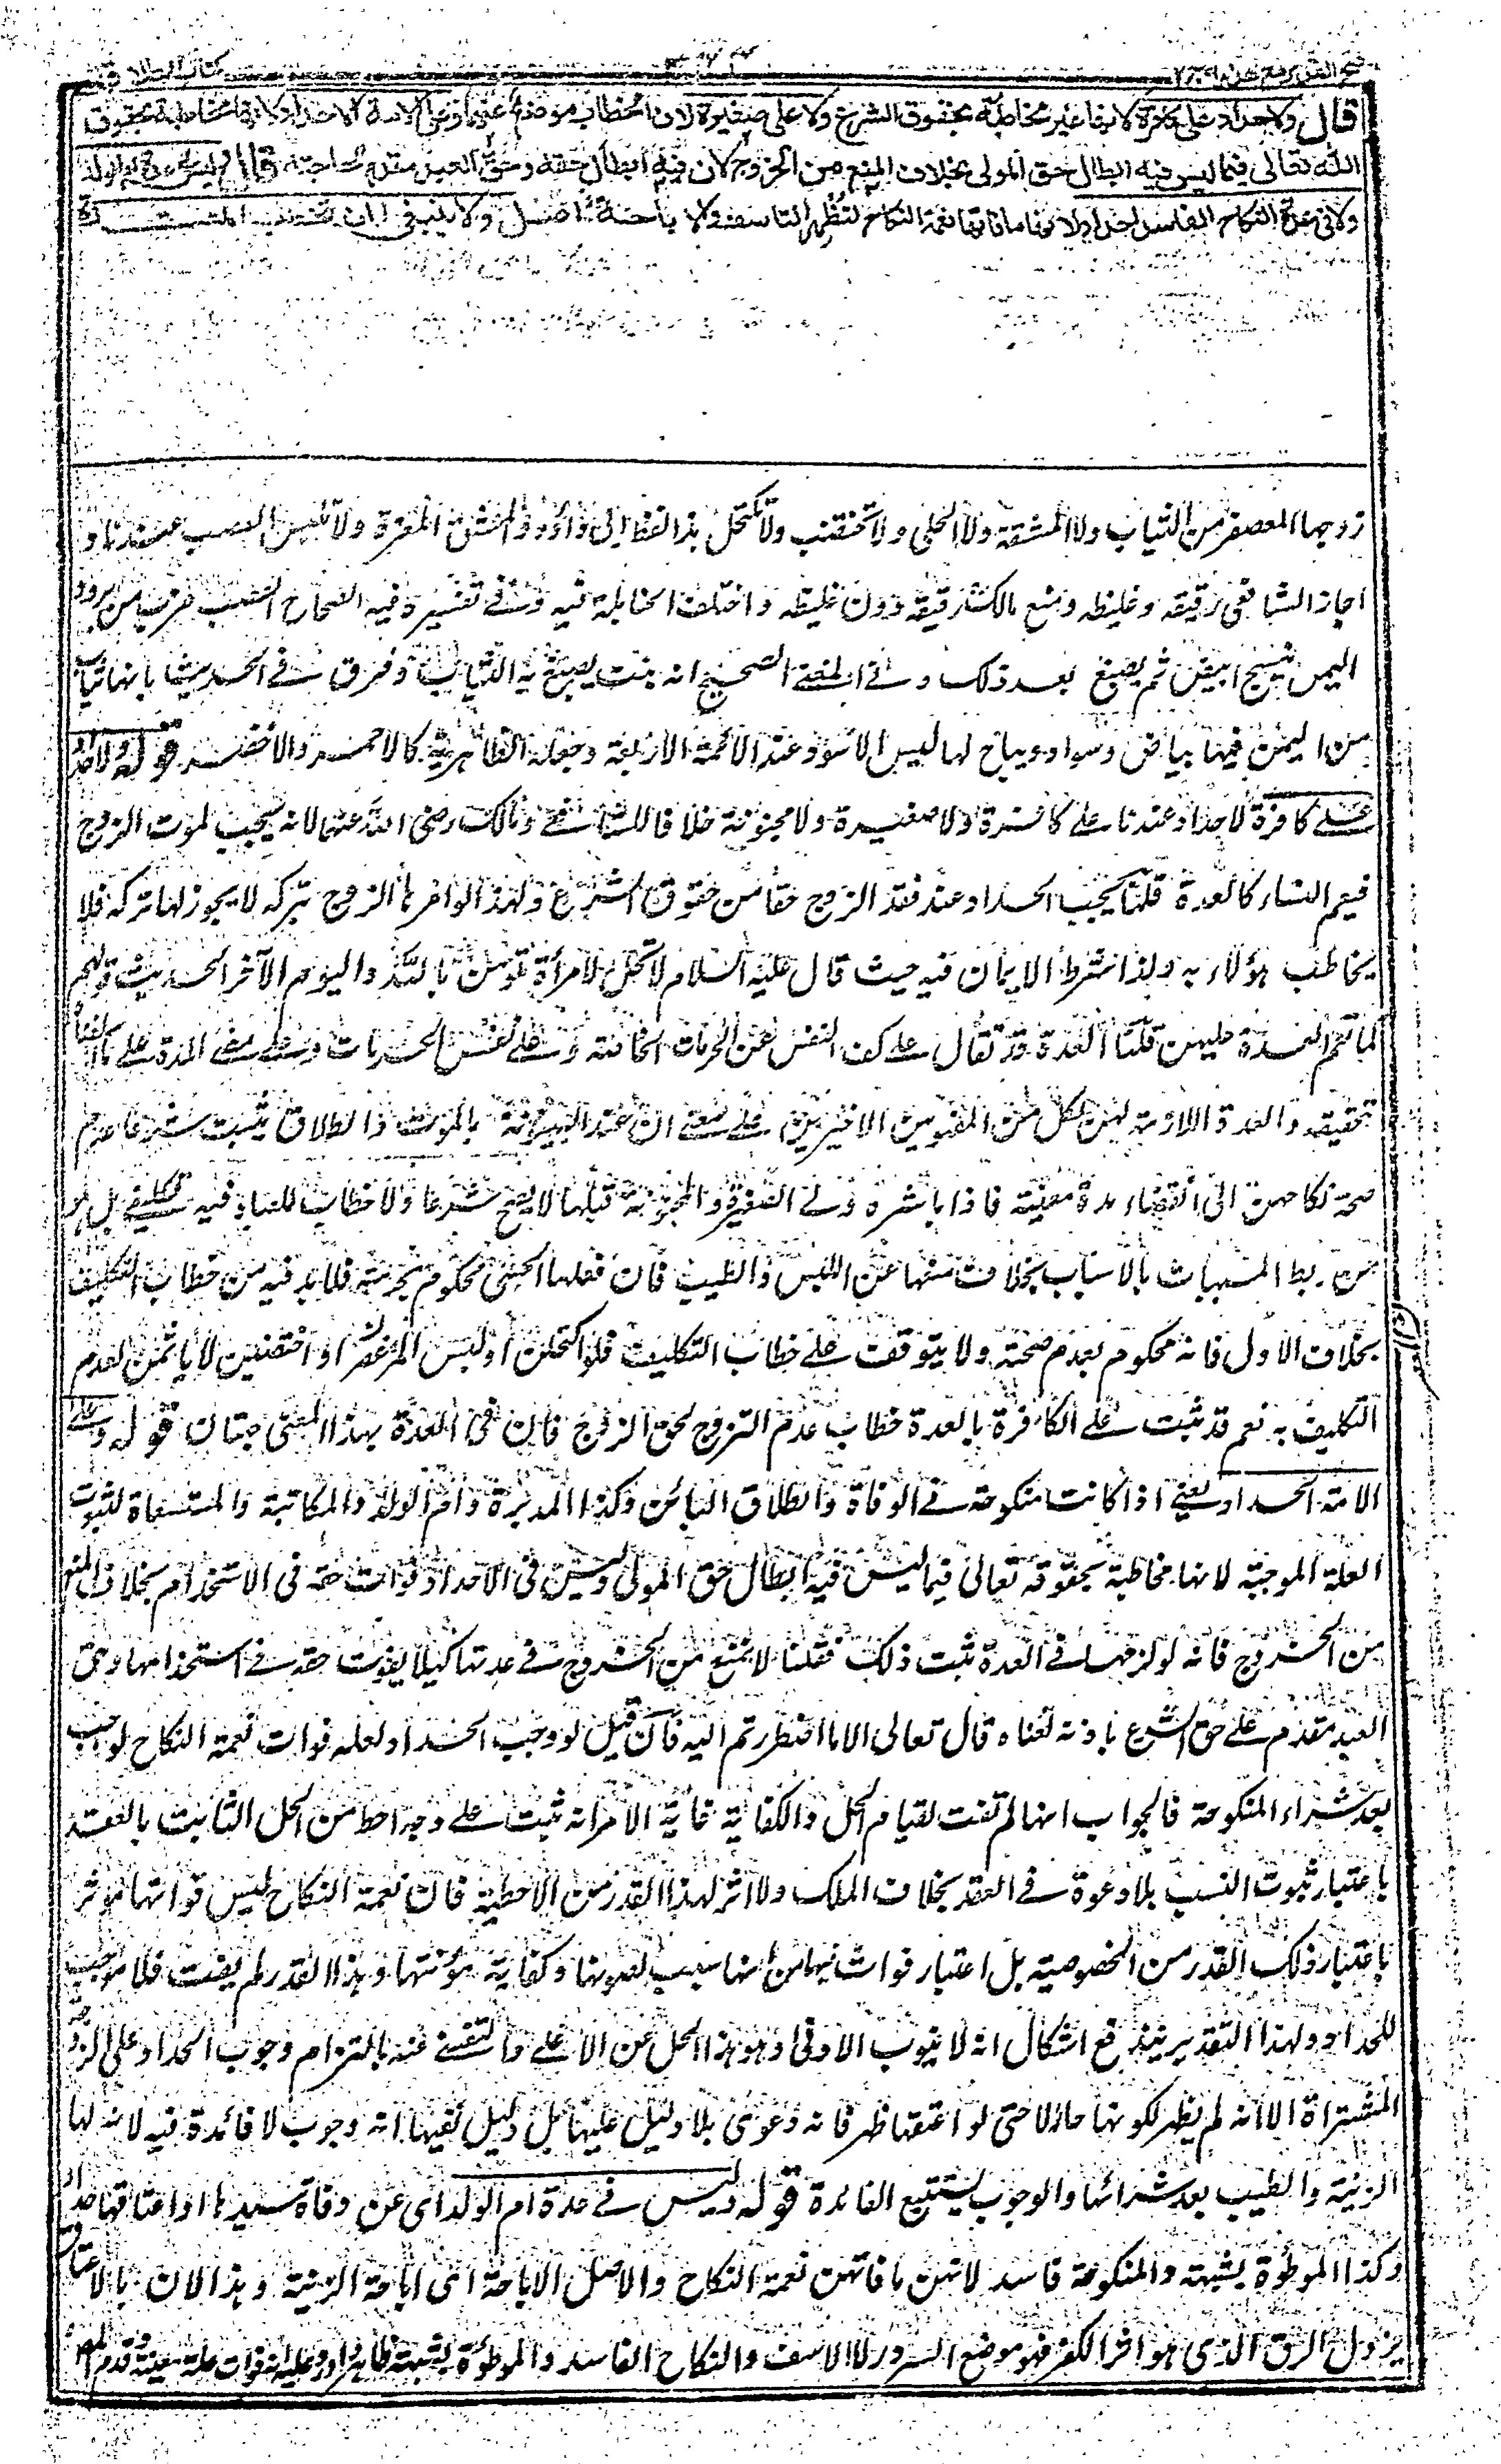 فتح القدير مع هدايه ج ٢
كتاب الطلاق
قال ولا حداد على كافرة لانها غير مخاطبة بحقوق الشرع ولا على صغيرة لان الخطاب موضوع عنها وعلى الامة الاحداد لانها مخاطبة بحقوق
الله تعالى فيما ليس فيه ابطال حق المولى بخلاف المنع من الخروج لان فيه ابطال حقه وحق العبد مقدم لحاجته قال وليس في عدة ام الولد
ولا في عدة النكاح الفاسد احداد لانها ما فاتها نعمة النكاح لتظهر التاسف والاباحة اصل ولا ينبغي ان تخطب المعتدة
زوجها المعصفر من الثياب ولا الممشقة ولا الحلى ولا تختضب ولا تكتحل هذا لفظ ابى داؤد والمشق المغرة ولا تلبس العصب عندنا و
اجاز الشافعى رقيقه وغليظه ومنع مالك رقيقه دون غليظه واختلف الحنابلة فيه وفى تفسيره فيه الصحاح العصب ضرب من برود
اليمن ينسج ابيض ثم يصبغ بعد ذلك وفى المغنى الصحيح انه نبت يصبغ به الثياب وفرق فى الحديث بانها ثياب
من اليمن فيها بياض وسواد ويباح لها لبس الاسود عند الائمة الاربعة وجعله الظاهرية كالاحمر والاخضر قوله ولا حداد
على كافرة لا حداد عندنا على كافرة ولا صغيرة ولا مجنونة خلافا للشافعى ومالك رضى الله عنهما لانه يجب لموت الزوج
فيعم النساء كالعدة قلنا يجب الحداد عند فقد الزوج حقا من حقوق الشرع ولهذا لو امرها الزوج بتركه لا يجوز لها تركه فلا
يخاطب هؤلاء به ولذا شرط الايمان فيه حيث قال عليه السلام لا تحل لامرأة تؤمن بالله واليوم الآخر الحديث قولهم
كما تعم العدة عليهن قلنا العدة قد تقال على كف النفس عن الحرمات الخاصة وعلى نفس الحرمات وعلى مضى المدة على ما اسلفنا
تحقيقه والعدة اللازمة لهن كل من المفهومين الاخيرين على معنى ان عند البينونة بالموت والطلاق يثبت شرعا عدم
صحة نكاحهن الى انقضاء مدة معينة فاذا باشره ولى الصغيرة والمجنونة قبلها لا يصح شرعا ولا خطاب للعباد فيه تكليفى بل هو
من ربط المسببات بالاسباب بخلاف منعها عن اللبس والطيب فان فعلها الحسى محكوم بحرمته فلا بد فيه من خطاب التكليف
بخلاف الاول فانه محكوم بعدم صحته ولا يتوقف على خطاب التكليف فلو اكتحلن او لبسن المزعفر او اختضبن لا ياثمن لعدم
التكليف به نعم قد ثبت على الكافرة بالعدة خطاب عدم التزوج لحق الزوج فان فى العدة بهذا المعنى جهتان قوله وعلى
الامة الحداد يعنى اذا كانت منكوحة فى الوفاة والطلاق البائن وكذا المدبرة وام الولد والمكاتبة والمستسعاة لثبوت
العلة الموجبة لانها مخاطبة بحقوقه تعالى فيما ليس فيه ابطال حق المولى وليس فى الاحداد فوات حقه فى الاستخدام بخلاف المنع
من الخروج فانه لو لزمها فى العدة ثبت ذلك فقلنا لا تمنع من الخروج فى عدتها كيلا يفوت حقه فى استخدامها وحق
العبد مقدم على حق الشرع باذنه لغناه قال تعالى الا ما اضطررتم اليه فان قيل لو وجب الحداد لعله فوات نعمة النكاح لوجب
بعد شراء المنكوحة فالجواب انها لم تفت لقيام الحل والكفاية غاية الامر انه ثبت على وجه احط من الحل الثابت بالعقد
باعتبار ثبوت النسب بلا دعوة فى العقد بخلاف الملك ولا اثر لهذا القدر من الاحطية فان نعمة النكاح ليس فواتها مؤثر
باعتبار ذلك القدر من الخصوصية بل اعتبار فواتها من انها سبب لصونها وكفاية مؤنتها وهذا القدر لم يفت فلا موجب
للحداد ولهذا التقدير يندفع اشكال انه لا ينوب الادنى وهو هذا الحل عن الاعلى والتفصى عنه بالتزام وجوب الحداد على الزوجة
المشتراة الا انه لم يظهر لكونها حلالا حتى لو اعتقها ظهر فانه دعوى بلا دليل عليها بل دليل نفيها انه وجوب لا فائدة فيه لانه لها
الزينة والطيب بعد شرائها والوجوب يستتبع الفائدة قوله وليس فى عدة ام الولد اى عن وفاة سيدها او اعتاقها حداد
وكذا الموطوءة بشبهة والمنكوحة فاسد لانهن ما فاتهن نعمة النكاح والاصل الاباحة اعنى اباحة الزينة وهذا لان بالاعتاق
يزول الرق الذى هو اثر الكفر فهو موضع السرور لا الاسف والنكاح الفاسد والموطوءة بشبهة ظاهر